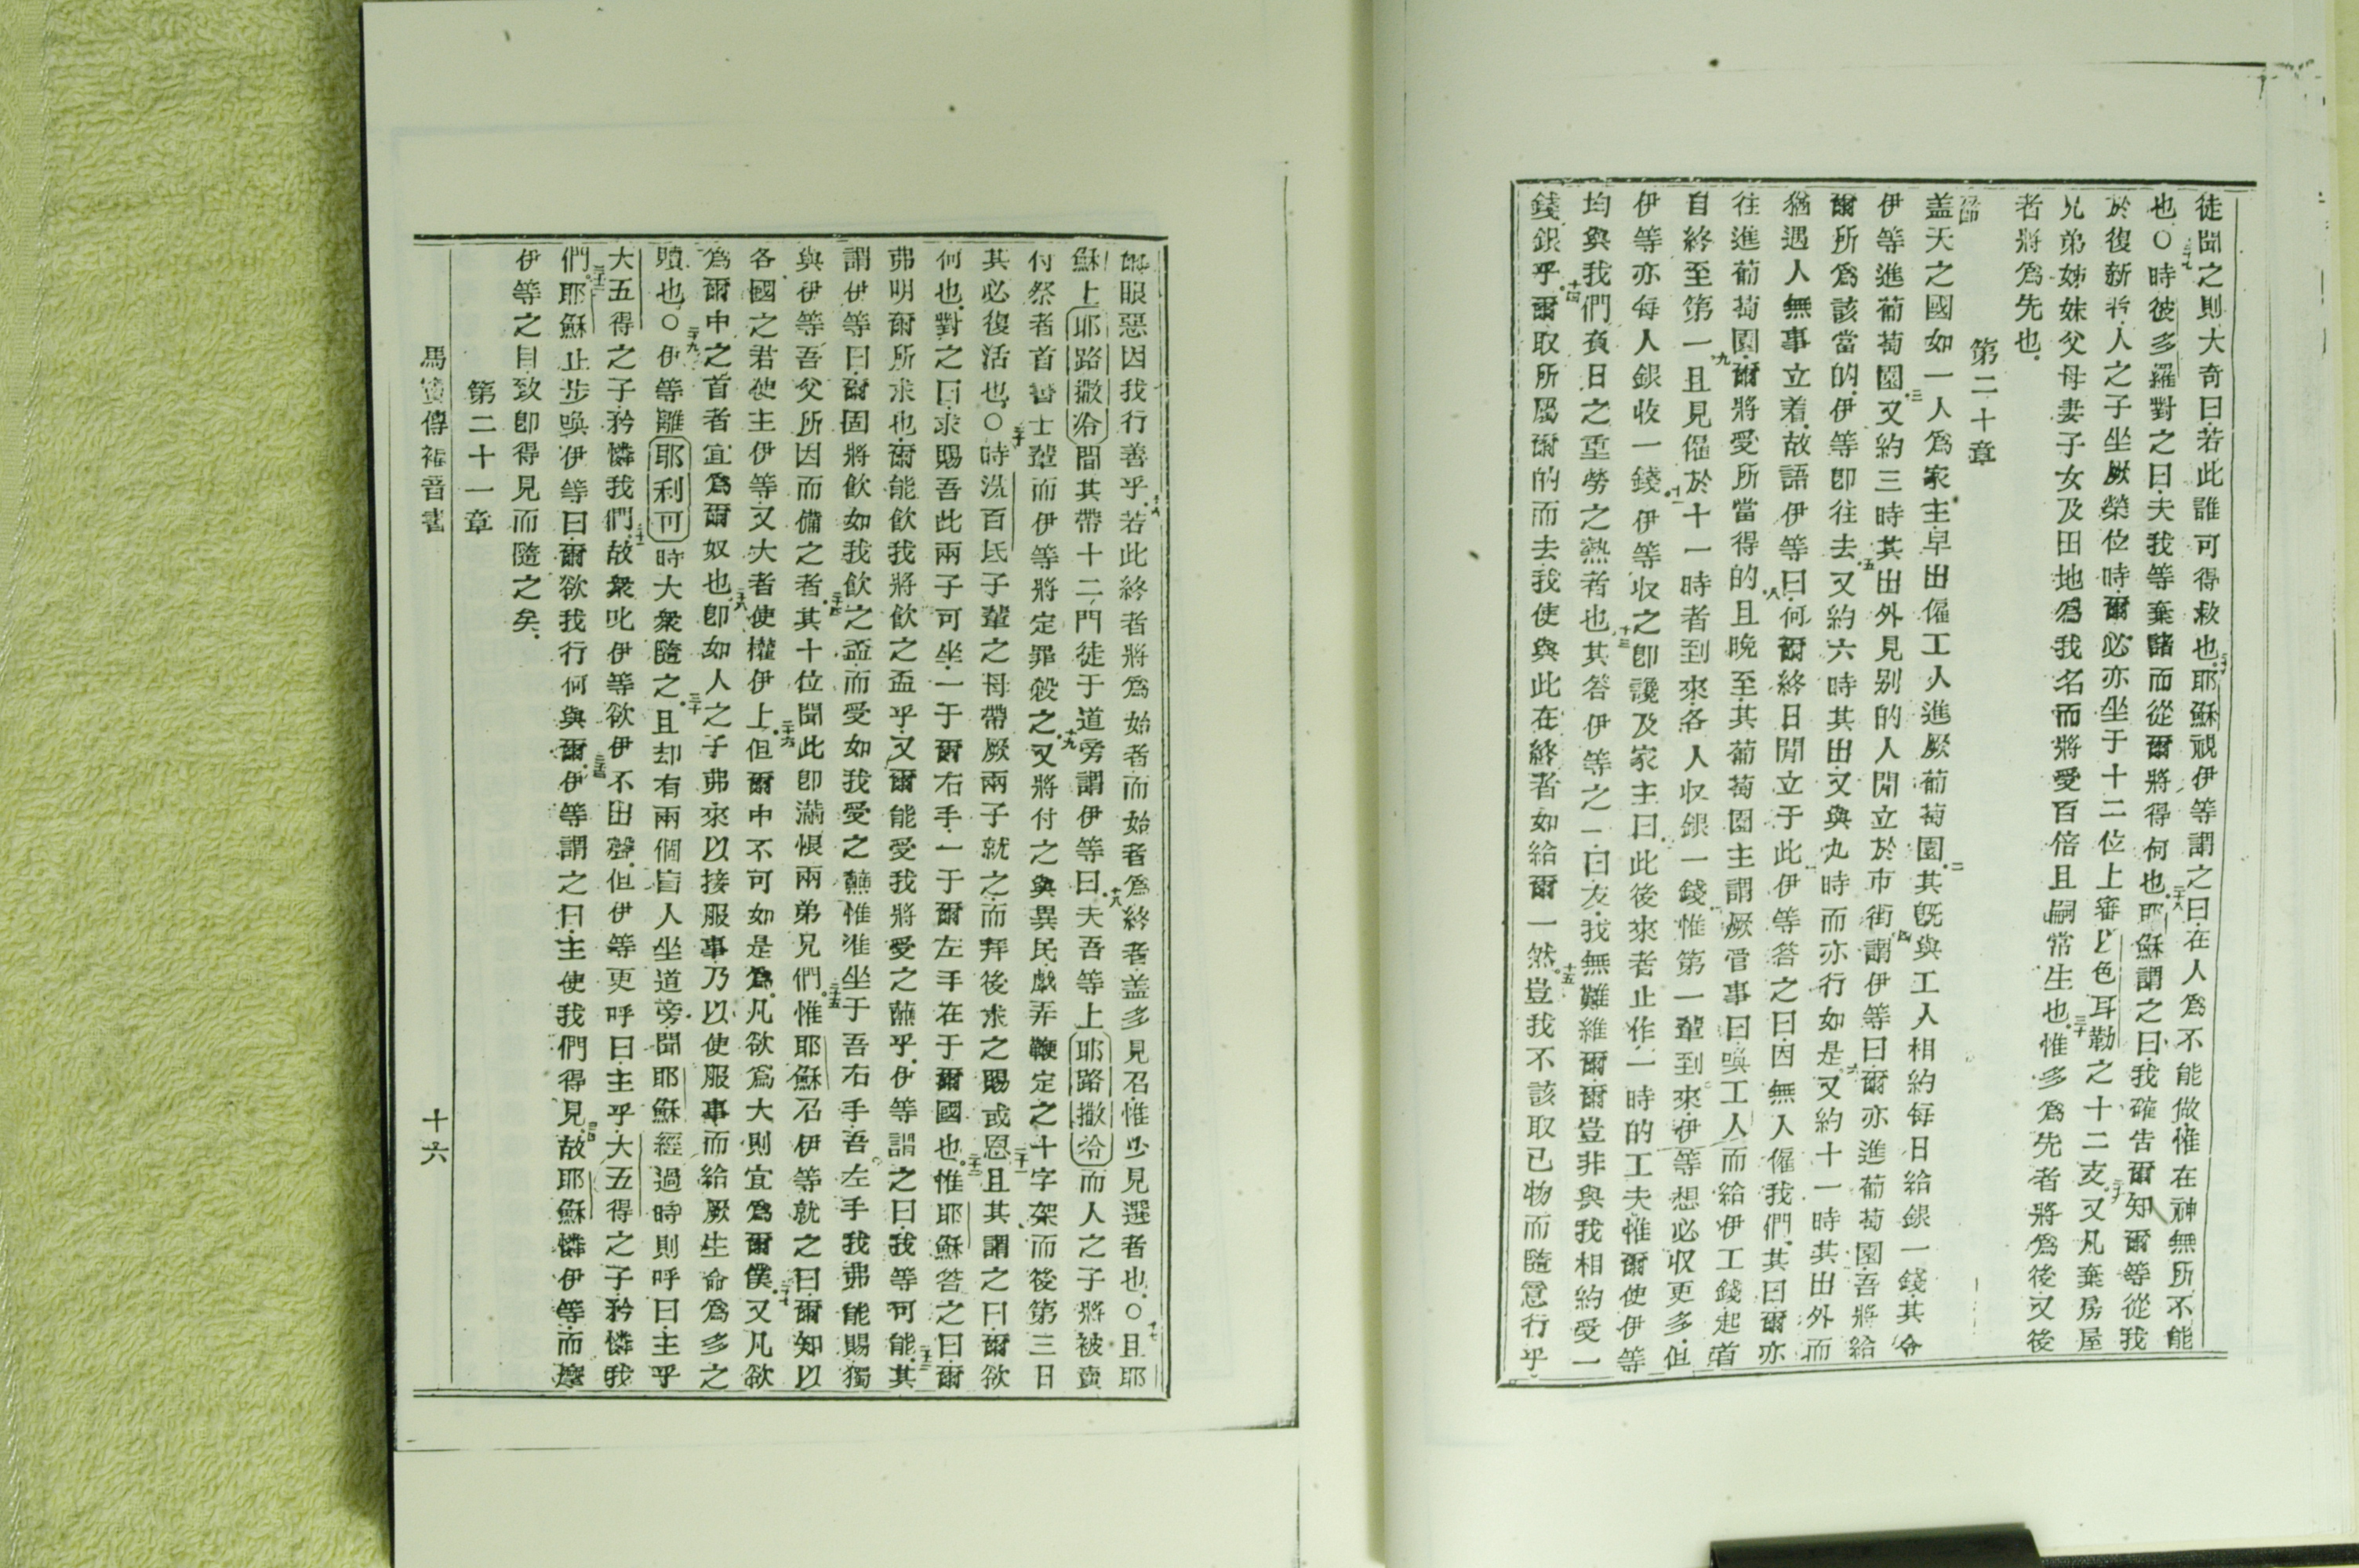 徒聞之則大奇曰若此誰可得救也耶穌視伊等謂之曰在人爲不能做惟在神無所不能
也○時彼多羅對之曰夫我等棄諸而從爾將得何也耶穌謂之曰我確告爾知爾等從我
於復新者人之子坐厥榮位時爾必亦坐于十二位上審以色耳勒之十二支又凡棄房屋
兄弟姊妹父母妻子女及田地爲我名而將愛百倍且嗣常生也惟多爲先者將爲後又後
者將爲先也
第二十章
蓋天之國如一人爲家主早出僱工人進厥葡萄園二其旣與工人相約每日給銀一錢其令
伊等進葡萄園三又約三時其出外見别的人閒立於市街四謂伊等曰爾亦進葡萄園吾將給
爾所爲該當的伊等卽往去五又約六時其出又與九時而亦行如是六又約十一時其出外而
猶遇人無事立着故語伊等曰何爾終日閒立于此伊等答之曰因無人僱我們其曰爾亦
往進葡萄園爾將受所當得的八且晚至其葡萄園主謂厥管事曰喚工人而給伊工錢起首
自終至第一九且見僱於十一時者到來各人収銀一錢惟第一輩到來伊等想必収更多但
伊等亦每人銀收一錢十一伊等収之卽讒及家主曰此後來者止作一時的工夫惟爾使伊等
均與我們負日之重勞之熱者也十三其答伊等之一曰友我無難維爾爾豈非與我相約受一
錢銀乎十四爾取所屬爾的而去我使與此在終者如給爾一然十五豈我不該取已物而隨意行乎
眼惡因我行善乎十六若此終者將爲始者而始者爲終者蓋多見召惟少見選者也○十七且耶
穌上耶路撒冷間其帶十二門徒于道旁謂伊等曰十八夫吾等上耶路撒冷而人之子將被賣
付祭者首書士輩而伊等將定罪殺之十九又將付之與異民戲弄鞭定之十字架而後第三日
其必復活也○二十時洗百氐子輩之母帶厥兩子就之而拜後求之賜或恩二十一且其謂之曰爾欲
何也對之曰求賜吾此兩子可坐一于爾右手一于爾左手在于爾國也二十二惟耶穌答之曰爾
弗明爾所求也爾能飮我將飮之盃乎又爾能受我將受之蘸乎伊等謂之曰我等可能二十三其
謂伊等曰爾固將飮如我飮之盃而受如我受之蘸惟准坐于吾右手吾左手我弗能賜獨
與伊等吾父所因而備之者二十四其十位聞此卽滿恨兩弟兄們二十五惟耶穌召伊等就之曰爾知以
各國之君使主伊等又大者使權伊上二十六但爾中不可如是爲凡欲爲大則宜爲爾僕二十七又凡欲
爲爾中之首者宜爲爾奴也二十八卽如人之子弗來以接服事乃以使服事而給厥生命爲多之
贖也○二十九伊等離耶利可時大衆隨之三十且却有兩個盲人坐道旁聞耶穌經過時則呼曰主乎
大五得之子矜憐我們三十一故衆叱伊等欲伊不出聲但伊等更呼曰主乎大五得之子矜憐我
們三十二耶穌止步喚伊等曰爾欲我行何與爾三十三伊等謂之曰主使我們得見三十四故耶穌憐伊等而摩
伊等之目致卽得見而隨之矣
第二十一章
馬竇傳福音書
十六